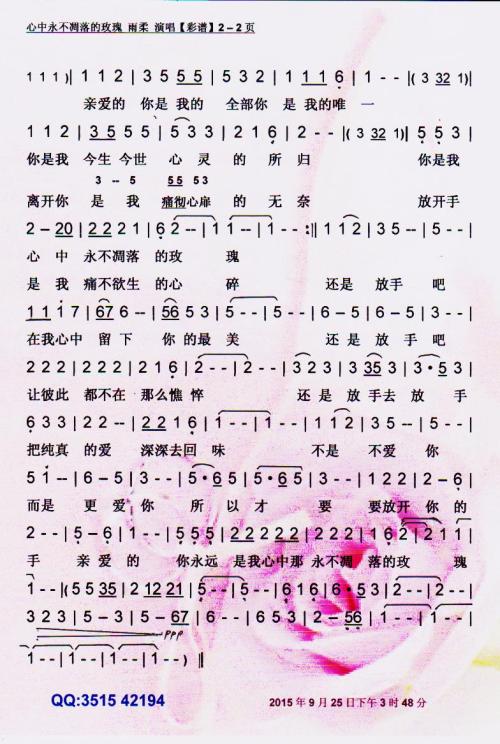 心中永不凋落的玫瑰 雨柔 演唱【彩谱】2－2页
1 1 1 ) | 1 2 | 3 5 5 5 | 5 3 2 | 1 1 1 6 | 1 - - | ( 3 321 ) |
亲爱的 你是 我的 全部你 是 我的唯 一
1 1 2 | 3 5 5 5 | 5 3 3 | 2 1 6 | 2 - - | ( 3 3 321 ) | 5 5 3 |
你是我 今生 今世 心灵 的 所归 你是我
3 -- 5 55 53
离开你 是 我 痛彻心扉 的 无奈 放开手
2 - 20 | 2 2 2 1 | 6 2 - - | 1 - - | 1 - - :‖ 1 1 2 | 3 5 - | 5 - - |
心 中 永不凋落 的玫 瑰
是 我 痛不欲生 的心 碎 还是 放手 吧
1 1 1 7 | 67 6 - - | 56 5 3 | 5 - - | 5 - - | 6 - 5 | 6 - 5 | 3 - - |
在我心中 留下 你的最 美 还是 放手吧
2 2 2 | 2 2 2 | 2 1 6 | 2 - - | 2 - - | 3 2 3 | 3 53 | 5 2 3 |
让彼此 都不在 那么憔 悴 还 是 放手去 放 手
6 3 3 | 2 2 - - | 2 2 1 6 | 1 - - | 1 - - | 3 - 5 | 5 - 3 | 2 - - |
把纯真 的爱 深深去回 味 不是 不爱 你
5 1 - - | 6 - 5 | 3 - - | 5·6 5 | 5·6 5 | 1 - - | 1 2 2 | 2 - 6 |
而是 更爱 你 所以 才 要 要放开 你的
2 - - | 5 - 6 | 1 - - | 5 5 5 | 2 2 2 2 2 | 2 2 2 | 2 1 6 2 | 2 1 1 |
手 亲爱 的 你永远 是我心中那 永不凋 落的玫 瑰
1 - - | ( 5 5 5 35 | 2 12 21 | 5 - - | 5 - - | 3 2 1 | 2 - - | 2 - - |
3 2 3 | 5 - 3 | 5 - 67 | 6 - - | 3 3 2 | 3 3 2 | 2 - 56 | 1 - - |
ppp
1 - - | 1 - - | 1 - - | 1 - - ) ‖
QQ:3515 42194
2015 年 9 月 25 日下午 3 时 48 分